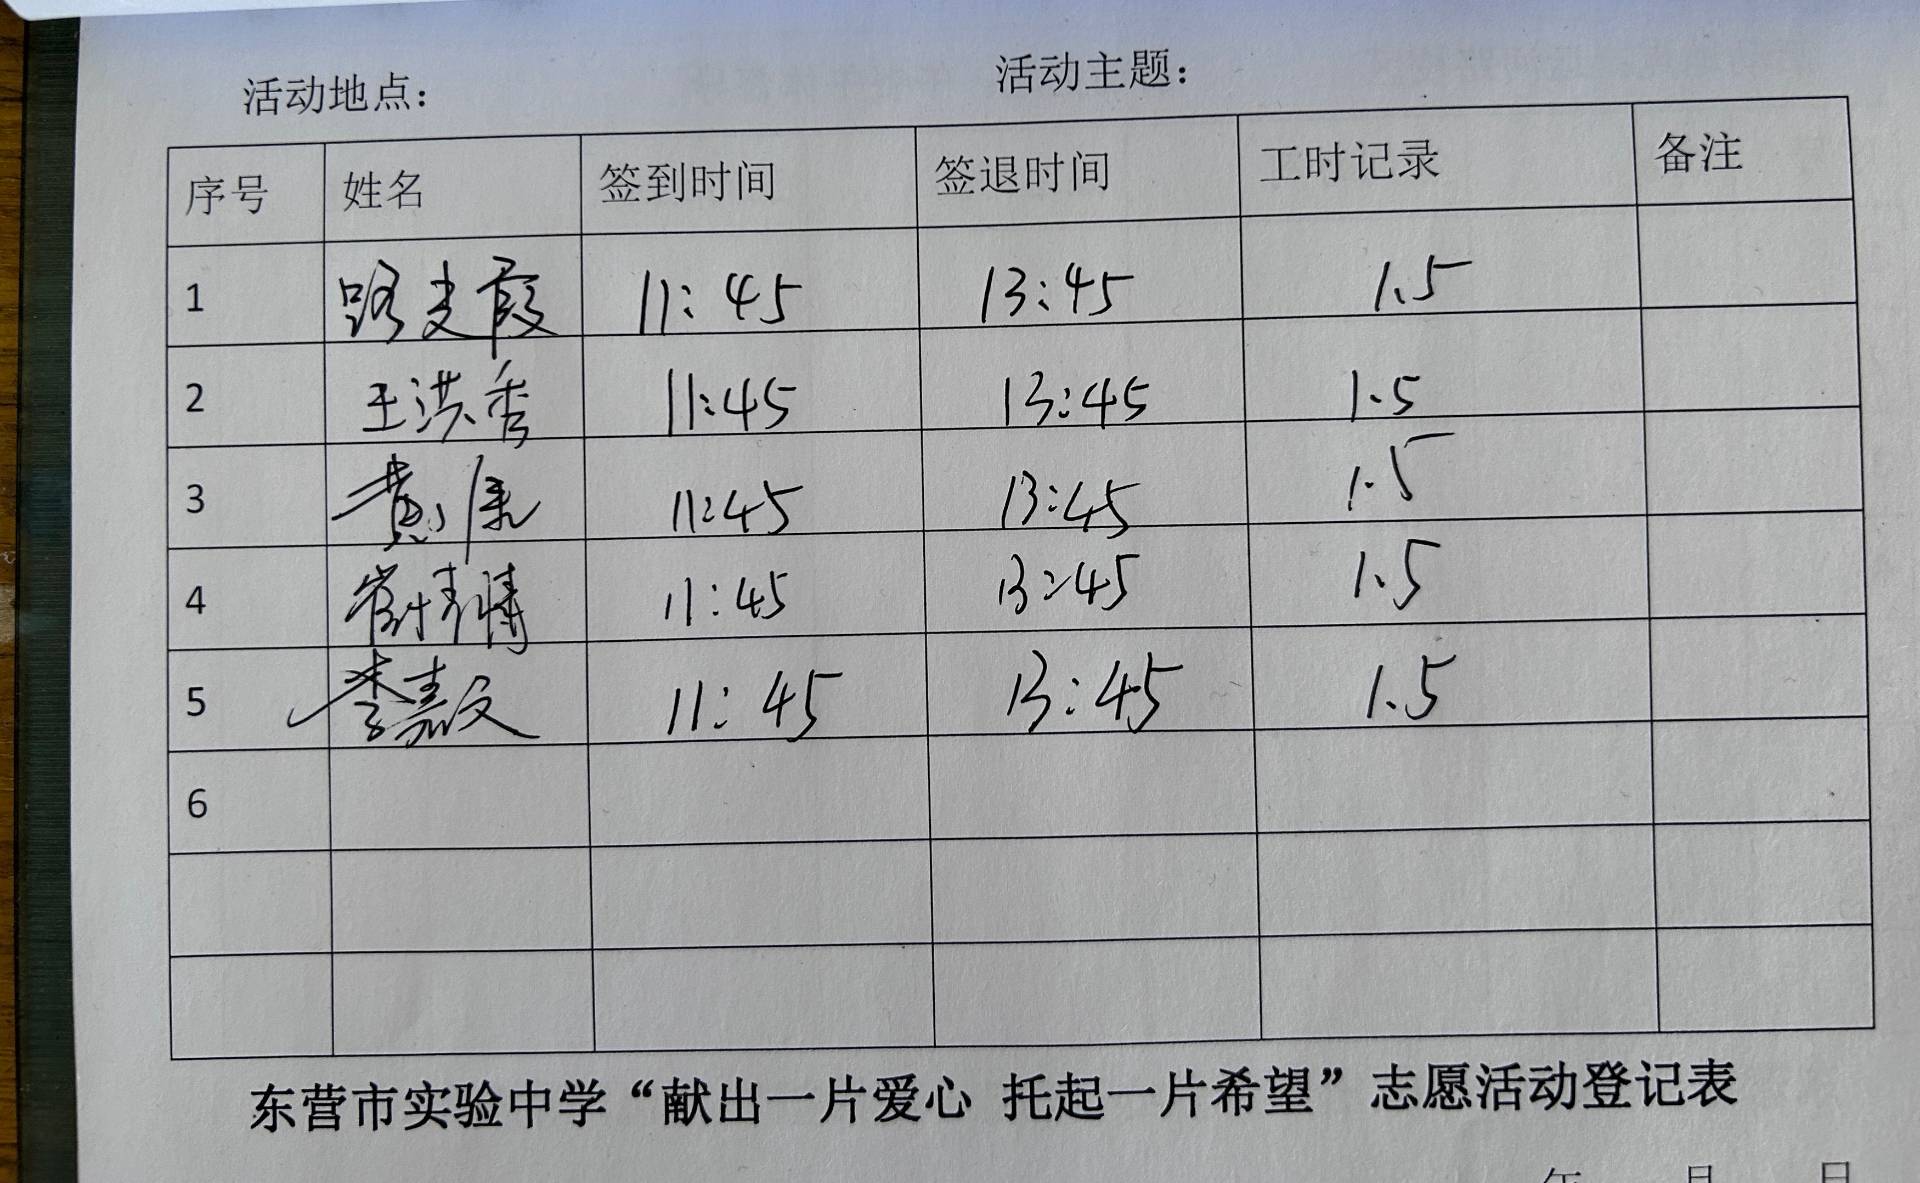 活动地点： 活动主题：
序号 姓名 签到时间 签退时间 工时记录 备注
1 路支霞 11:45 13:45 1.5
2 王洪秀 11:45 13:45 1.5
3 黄康 11:45 13:45 1.5
4 11:45 13:45 1.5
5 李嘉文 11:45 13:45 1.5
6
东营市实验中学“献出一片爱心 托起一片希望”志愿活动登记表
年 月 日